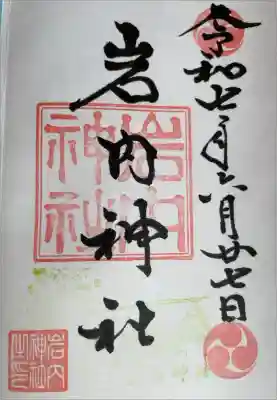 令和七年六月廿七日
岩内神社
岩内
神社
岩内
神社
之印